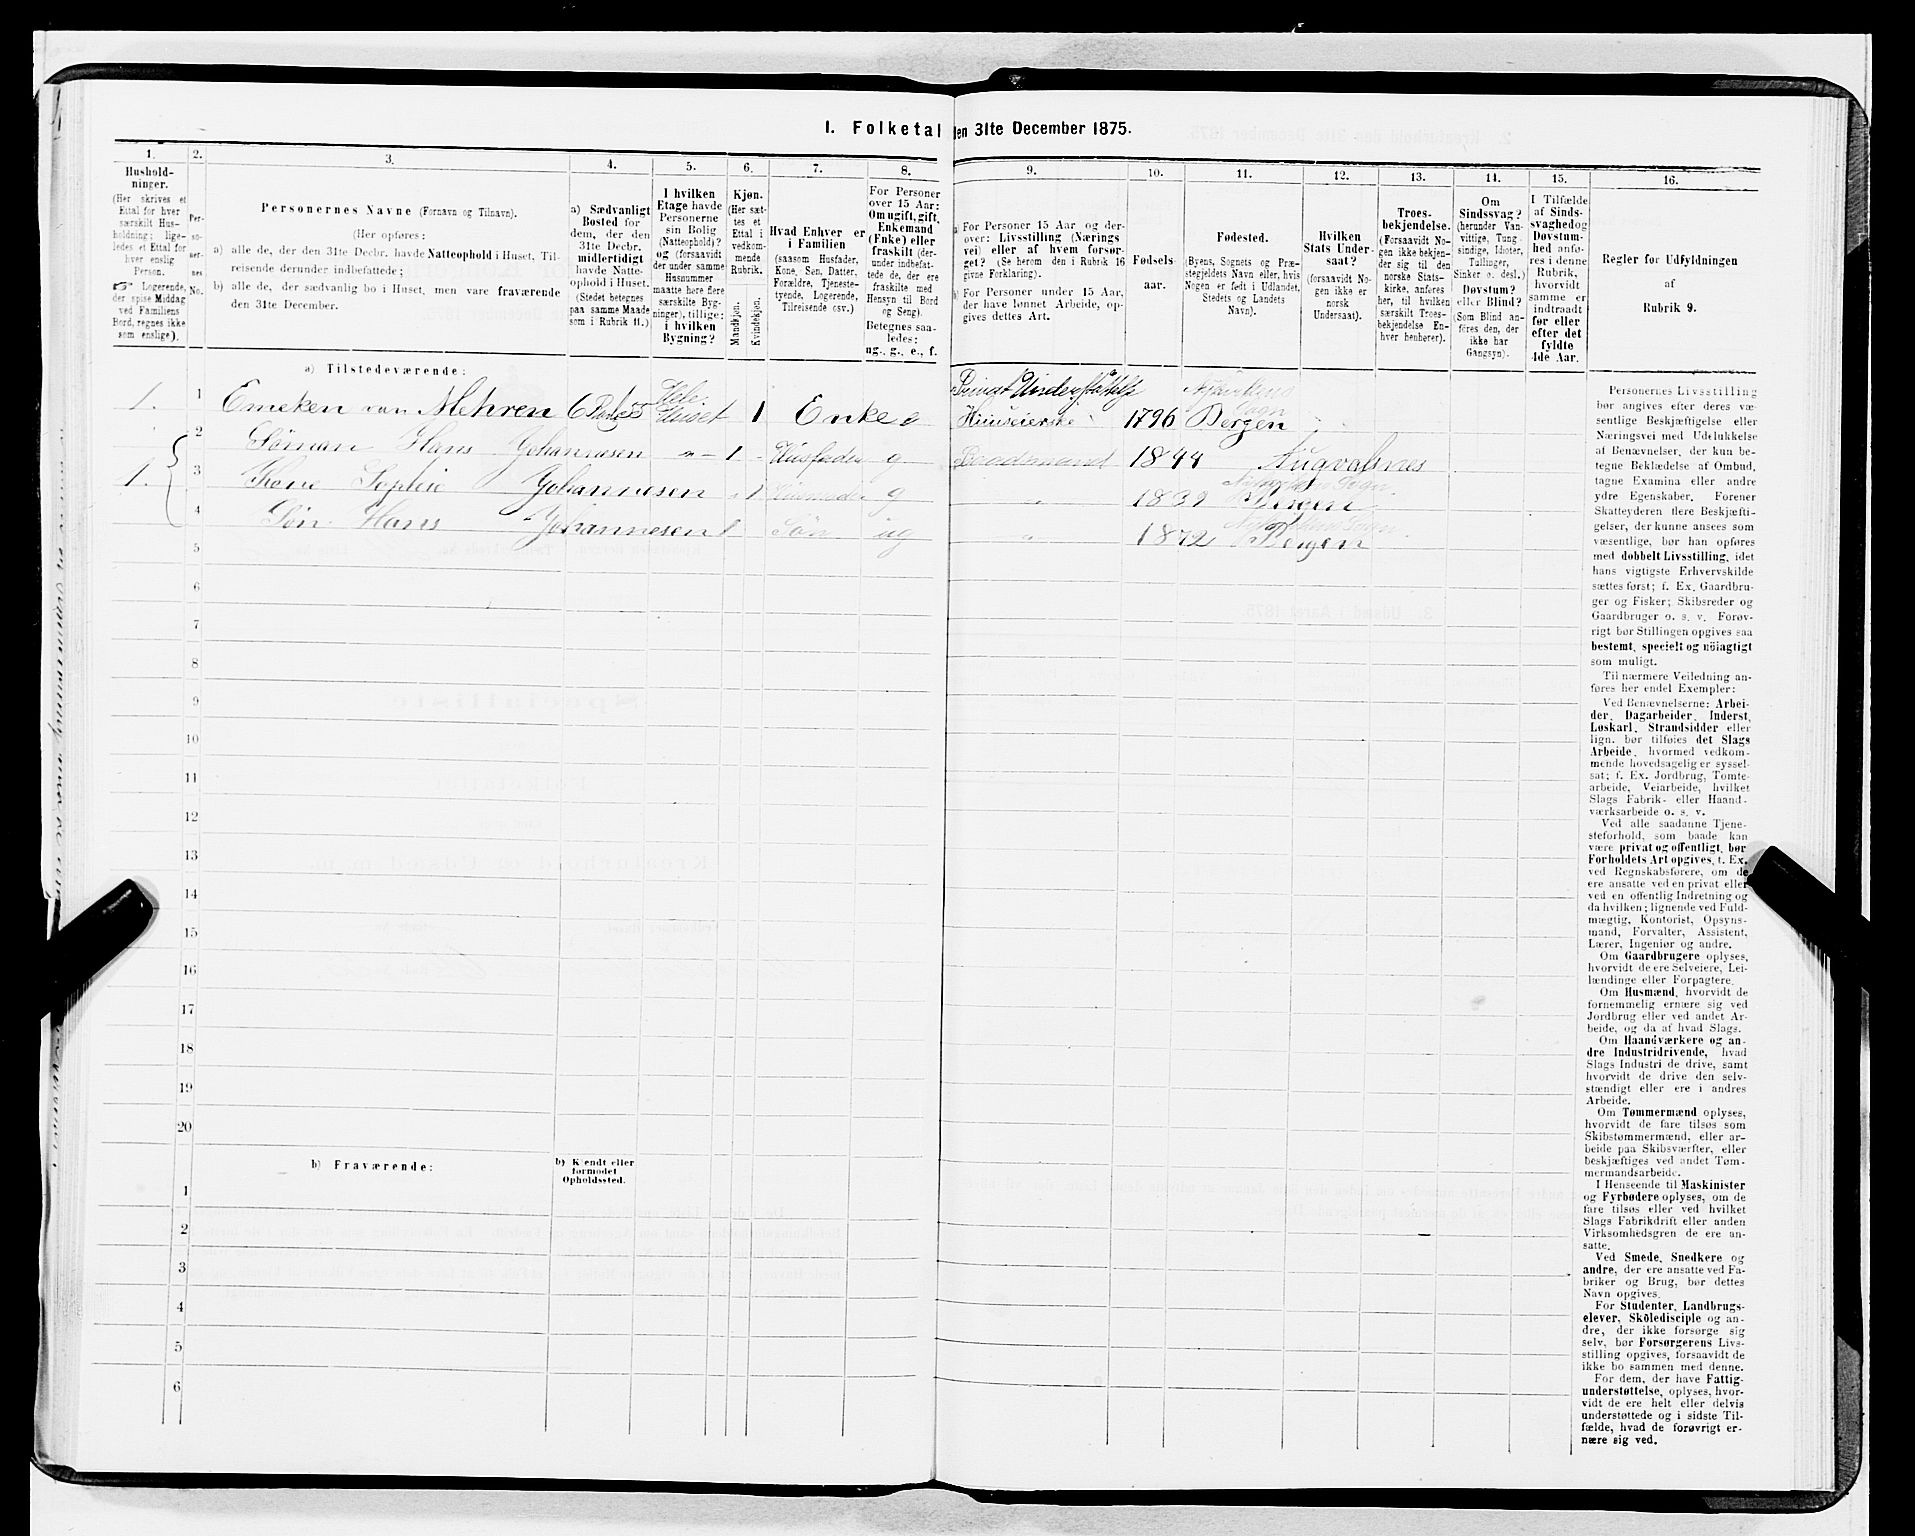 I. Folketal den 31te December 1875.
1.
2.
3.
4.
5.
6.
7.
8.
9.
10.
11.
12.
13.
14.
15.
16.
Hushold-
ninger.
(Her skrives et
Ettal for hver
særskilt Hus-
holdning; lige-
ledes et Ettal for
hver enslig
Person.
☞ Logerende,
der spise Middag
ved Familiens
Bord, regnes ikke
som enslige).
Per-
so-
ner-
nes
No.
Personernes Navne (Fornavn og Tilnavn).
(Her opføres:
a) alle de, der den 31te Decbr. havde Natteophold i Huset, Til-
reisende derunder indbefattede;
b) alle de, der sædvanlig bo i Huset, men vare fraværende
den 31te December.
a) Sædvanligt
Bosted for
dem, der den
31te Decbr.
midlertidigt
havde Natte-
ophold i Huset.
(Stedet betegnes
paa samme Maade
som i Rubrik 11.)
I hvilken
Etage havde
Personerne
sin Bolig
(Natteophold)?
og (forsaavidt
der under samme
Husnummer
maatte høre flere
særskilte Byg-
ninger), tillige:
i hvilken
Bygning?
Kjøn.
(Her sæt-
tes et
Ettal i
vedkom-
mende
Rubrik.
Mandkjøn.
Kvindekjøn.
Hvad Enhver er
i Familien
(saasom Husfader,
Kone, Søn, Datter,
Forældre, Tjeneste-
tyende, Logerende,
Tilreisende osv.)
For Personer
over 15 Aar:
Om ugift, gift,
Enkemand
(Enke) eller
fraskilt (der-
under indbefat-
tede de, der ere
fraskilte med
Hensyn til Bord
og Seng).
Betegnes saa-
ledes:
ug., g., e., f.
a) For Personer 15 Aar og der-
over: Livsstilling (Nærings
vei) eller af hvem forsør-
get? (Se herom den i Rubrik 16
givne Forklaring).
b) For Personer under 15 Aar,
der have lønnet Arbeide, op-
gives dettes Art.
Fødsels-
aar.
Fødested.
(Byens, Sognets og Præ-
stegjeldets Navn eller, hvis
Nogen er født i Udlandet,
Stedets og Landets
Navn).
Hvilken
Stats Under-
saat?
(forsaavidt No-
gen ikke er
norsk
Undersaat).
Troes-
bekjendelse.
(Forsaavidt No-
gen ikke bekjen-
der sig til den
norske Stats-
kirke, anføres
her, til hvilken
særskilt Troes-
bekjendelse En-
hver henhører).
Om
Sindssvag?
(herunder Van-
vittige, Tung-
sindige, Idioter,
Tullinger,
Sinker o. desl.)
Døvstum?
eller Blind?
(Som Blind an-
føres den, der
ikke har
Gangsyn).
I Tilfælde
af Sinds-
svaghed og
Døvstum-
hed anfø-
res i denne
Rubrik,
hvorvidt
samme er
indtraadt
før eller
efter det
fyldte
4de Aar.
Regler for Udfyldningen
af
Rubrik 9.
a) Tilstedeværende:
1. 1 Emeken van Mehren Hele Huset 1 Enke e Privat Understøttelse Huuseierske 1796 Nykirkens Sogn Bergen
2 Søman Hans Johannesen „ 1 Husfader g Baadsmand 1844 Augvalsnes
1. 3 Kone Sophie Johannesen 1 Husmoder g „ 1839 Bergen
4 Søn Hans Johannesen 1 Søn ug „ 1872 Bergen
5
6
7
8
9
10
11
12
13
14
15
16
17
18
19
20
b) Fraværende:
b) Kjendt eller
formodet
Opholdssted.
1
2
3
4
5
6
Personernes Livsstilling
bør angives efter deres væ-
sentlige Beskjæftigelse eller
Næringsvei med Udelukkelse
af Benævnelser, der kun be-
tegne Beklædelse af Ombud,
tagne Examina eller andre
ydre Egenskaber. Forener
Skatteyderen flere Beskjæfti-
gelser, der kunne ansees som
væsentlige, bør han opføres
med dobbelt Livsstilling, idet
hans vigtigste Erhvervskilde
sættes først; f. Ex. Gaardbru-
ger og Fisker; Skibsreder og
Gaardbruger o. s. v. Forøv-
rigt bør Stillingen opgives saa
bestemt, specielt og nöiagtigt
som muligt.
Til nærmere Veiledning an-
føres her endel Exempler:
Ved Benævnelserne: Arbei-
der, Dagarbeider, Inderst,
Løskarl, Strandsidder eller
lign. bør tilføies det Slags
Arbeide, hvormed vedkom-
mende hovedsagelig er syssel-
sat; f. Ex. Jordbrug, Tomte-
arbeide, Veiarbeide, hvilket
Slags Fabrik- eller Haand-
værksarbeide o. s. v.
Ved alle saadanne Tjene-
steforhold, som baade kan
være privat og offentligt, bør
Forholdets Art opgives, t. Ex.
ved Regnskabsførere, om de
ere ansatte ved en privat eller
ved en offentlig Indretning og
da hvilken; lignende ved Fuld-
mægtig, Kontorist, Opsyns-
mand, Forvalter, Assistent,
Lærer, Ingeniør og andre.
Om Gaardbrugere oplyses,
hvorvidt de ere Selveiere, Lei-
lændinge eller Forpagtere.
Om Husmænd, hvorvidt de
fornemmelig ernære sig ved
Jordbrug eller ved andet Ar-
beide, og da af hvad Slags.
Om Haandværkere og an-
dre Industridrivende, hvad
Slags Industri de drive, samt
hvorvidt de drive den selv-
stændigt eller ere i andres
Arbeide.
Om Tømmermænd oplyses,
hvorvidt de fare tilsøs som
Skibstømmermænd, eller ar-
beide paa Skibsværfter, eller
beskjæftiges ved andet Tøm-
mermandsarbeide.
I Henseende til Maskinister
og Fyrbødere oplyses, om de
fare tilsøs eller ved hvilket
Slags Fabrikdrift eller anden
Virksomhedsgren de ere an-
satte.
Ved Smede, Snedkere og
andre, der ere ansatte ved Fa-
briker og Brug, bør dettes
Navn opgives.
For Studenter, Landbrugs-
elever, Skoledisciple og an-
dre, der ikke forsørge sig
selv, bør Forsørgerens Livs-
stilling opgives, forsaavidt de
ikke bo sammen med denne.
For dem, der have Fattig-
understøttelse, oplyses, hvor-
vidt de ere helt eller delvis
understøttede og i sidste Til-
fælde, hvad de forøvrigt er-
nære sig ved.